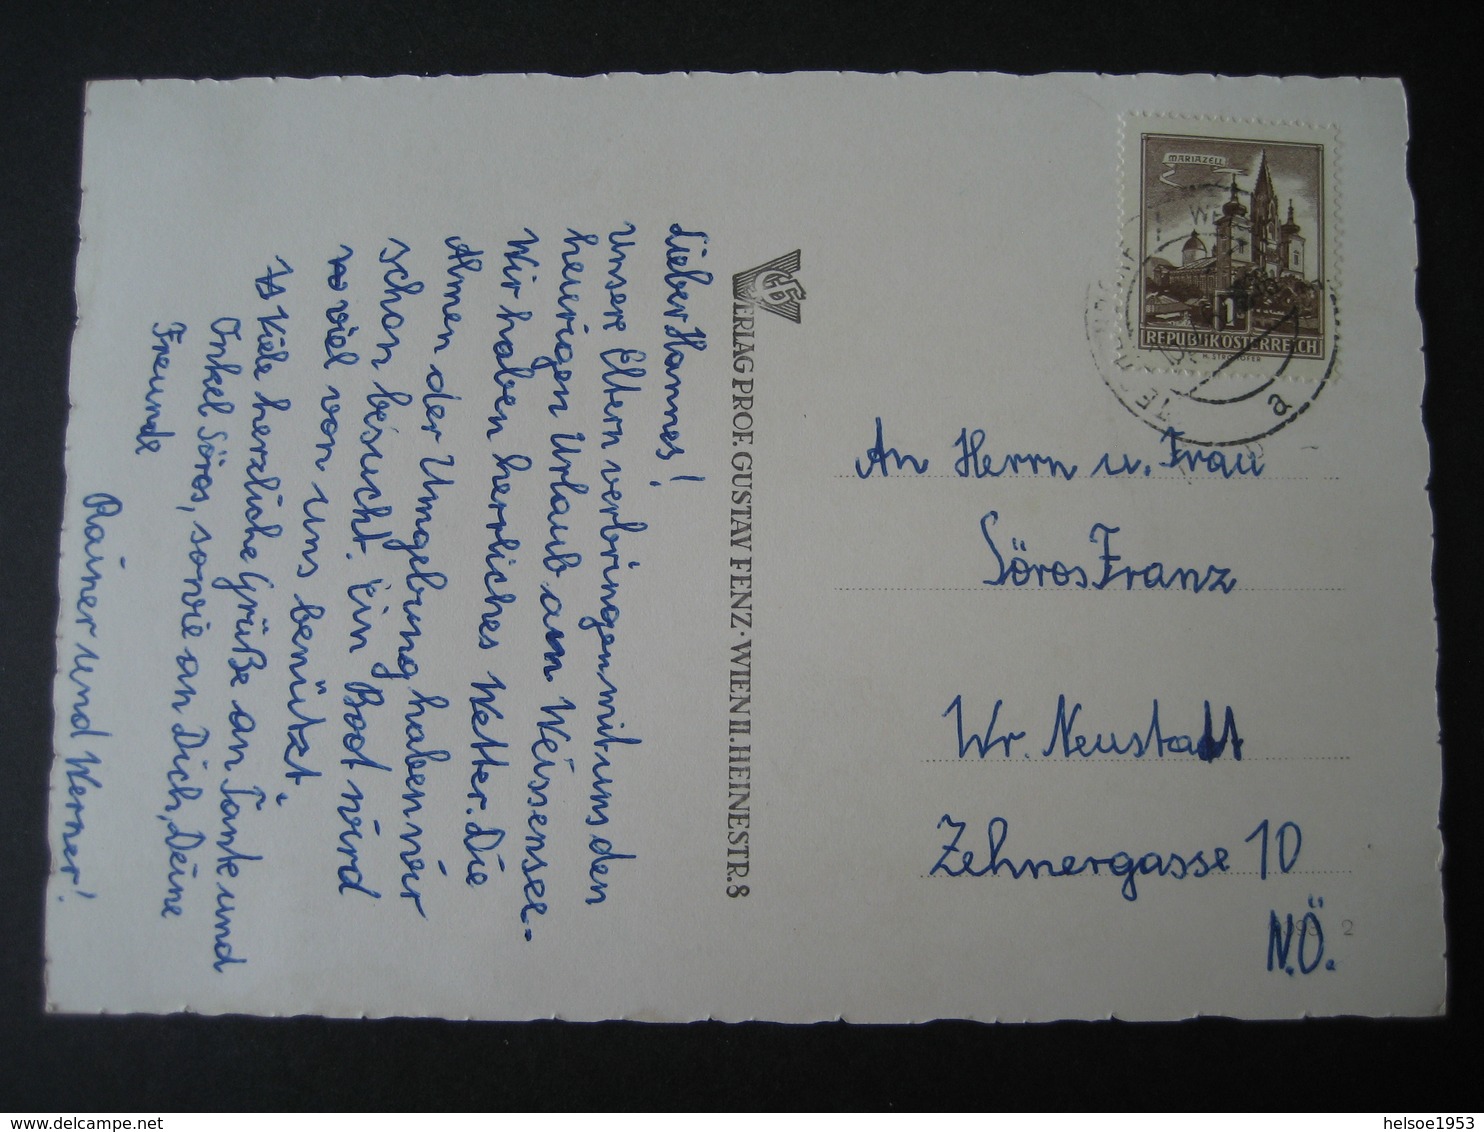 Lieber Hannes!
Unsere Eltern verbringen mit uns den
heurigen Urlaub am Weissensee.
Wir haben herrliches Wetter. Die
Almen der Umgebung haben wir
schon besucht. Ein Boot wird
viel von uns benützt.
Viele herzliche Grüße an Tante und
Onkel Sörös, sowie an Dich, Deine
Freunde
Rainer und Werner!
VERLAG PROF. GUSTAV FENZ · WIEN II. HEINESTR. 8
MARIAZELL
1
REPUBLIK ÖSTERREICH
a
An Herrn u. Frau
Sörös Franz
Wr. Neustadt
Zehnergasse 10
N.Ö.
2
helsoe1953